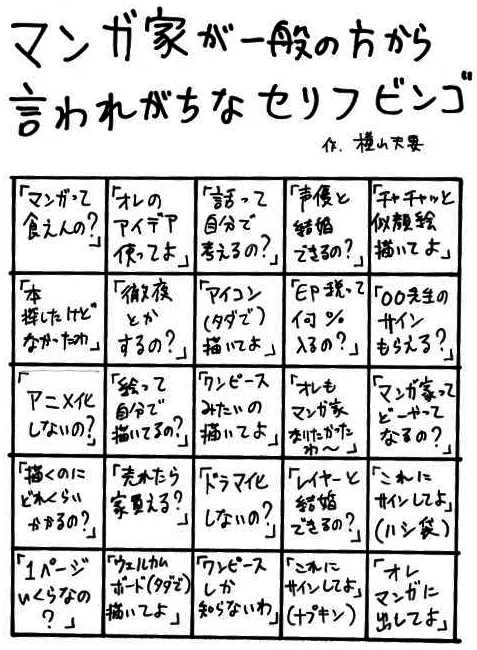 マンガ家が一般の方から
言われがちなセリフビンゴ
作.横山夫妻
「マンガって
食えんの?」
「オレの
アイデア
使ってよ」
「話って
自分で
考えるの?」
「声優と
結婚
できるの?」
「チャチャッと
似顔絵
描いてよ」
「本
探したけど
なかったわ」
「徹夜
とか
するの?」
「アイコン
(タダで)
描いてよ」
「印税って
何%
入るの?」
「〇〇先生の
サイン
もらえる?」
「アニメ化
しないの?」
「絵って
自分で
描いてるの?」
「ワンピース
みたいの
描いてよ」
「オレも
マンガ家
なりたかった
わ〜」
「マンガ家って
どーやって
なるの?」
「描くのに
どれくらい
かかるの?」
「売れたら
家買える?」
「ドラマ化
しないの?」
「レイヤーと
結婚
できるの?」
「これに
サインしてよ」
(ハシ袋)
「1ページ
いくらなの
?」
「ウェルカム
ボード(タダで)
描いてよ」
「ワンピース
しか
知らないわ」
「これに
サインしてよ」
(ナプキン)
「オレ
マンガに
出してよ」